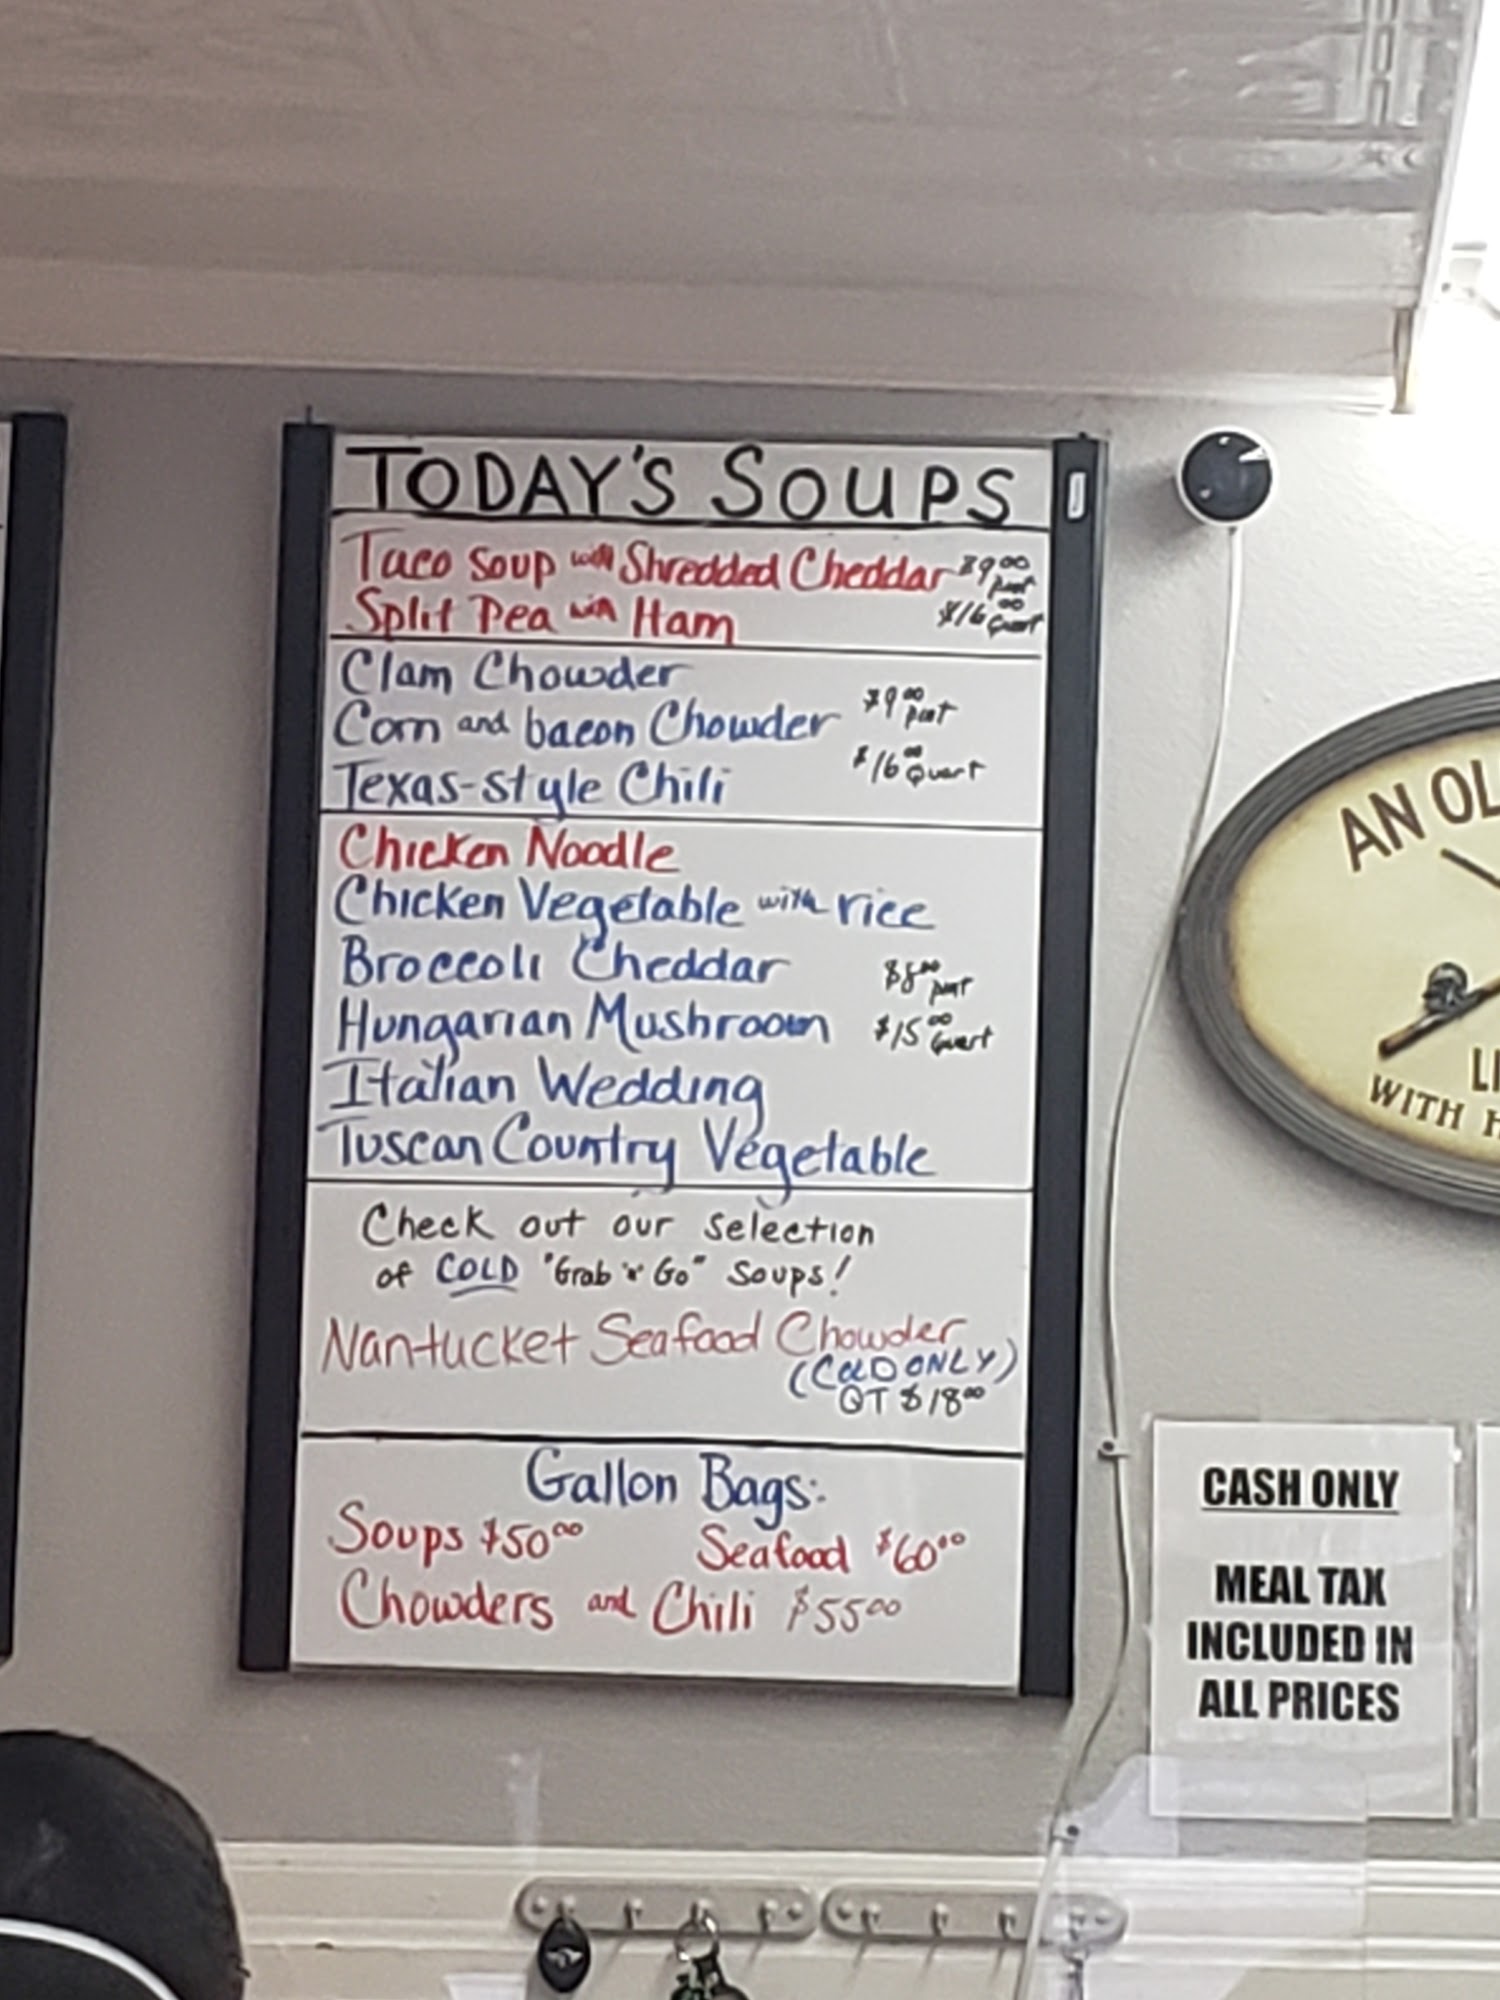 TODAY'S SOUPS
Taco Soup with Shredded Cheddar $9.00 pint
Split Pea with Ham $16.00 Quart
Clam Chowder
Corn and bacon Chowder $9.00 pint
Texas-style Chili $16.00 Quart
Chicken Noodle
Chicken Vegetable with rice
Broccoli Cheddar $8.00 pint
Hungarian Mushroom $15.00 Quart
Italian Wedding
Tuscan Country Vegetable
Check out our selection
of COLD "Grab 'n' Go" Soups!
Nantucket Seafood Chowder
(COLD ONLY)
QT $18.00
Gallon Bags:
Soups $50.00 Seafood $60.00
Chowders and Chili $55.00
AN OL
LI
WITH H
CASH ONLY
MEAL TAX
INCLUDED IN
ALL PRICES